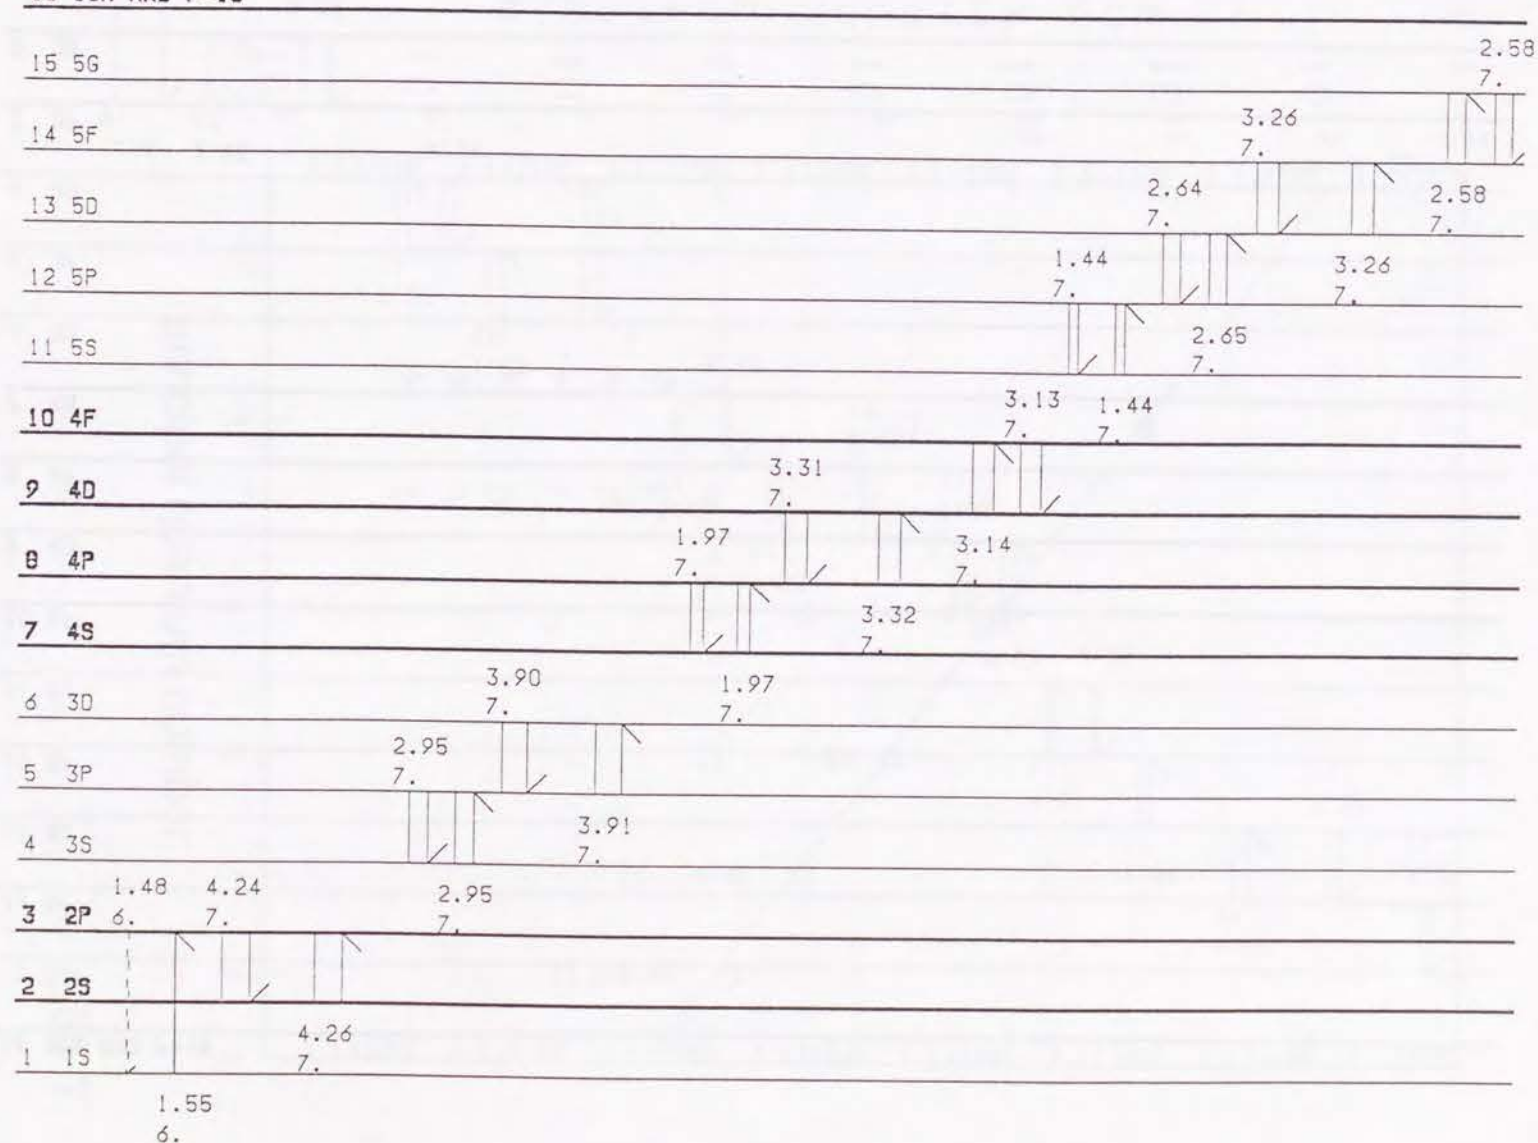 15 5G
2.58
7.
14 5F
3.26
7.
13 5D
2.64
7.
2.58
7.
12 5P
1.44
7.
3.26
7.
11 5S
2.65
7.
10 4F
3.13
7.
1.44
7.
9 4D
3.31
7.
8 4P
1.97
7.
3.14
7.
7 4S
3.32
7.
6 3D
3.90
7.
1.97
7.
5 3P
2.95
7.
4 3S
3.91
7.
3 2P
1.48
6.
4.24
7.
2.95
7.
2 2S
1 1S
4.26
7.
1.55
6.